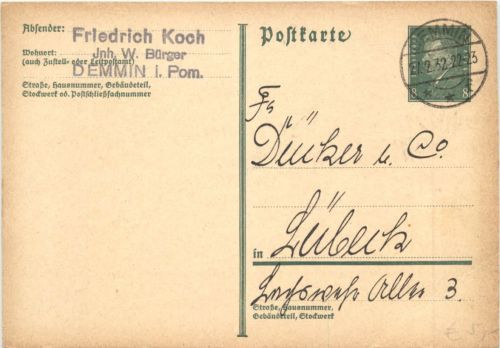 Absender:
Friedrich Koch
Jnh. W. Bürger
DEMMIN i. Pom.
Wohnort:
(auch Zustell- oder Leitpostamt)
Straße, Hausnummer, Gebäudeteil,
Stockwerk od. Postschließfachnummer
Postkarte
DEMMIN
2.32.22-23
8 8
Fa
Dücker u. Co.
in Lübeck
Allee 3.
Straße, Hausnummer,
Gebäudeteil, Stockwerk